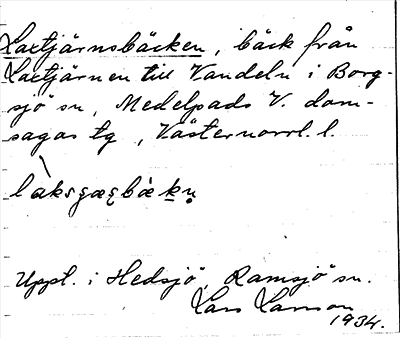 Laxtjärnsbäcken, bäck från
Laxtjärnen till Vandeln i Borg-
sjö sn, Medelpads V. dom-
sagas tg, Västernorrl. l.
Uppt. i Hedsjö, Ramsjö sn.
Lars Larsson
1934.